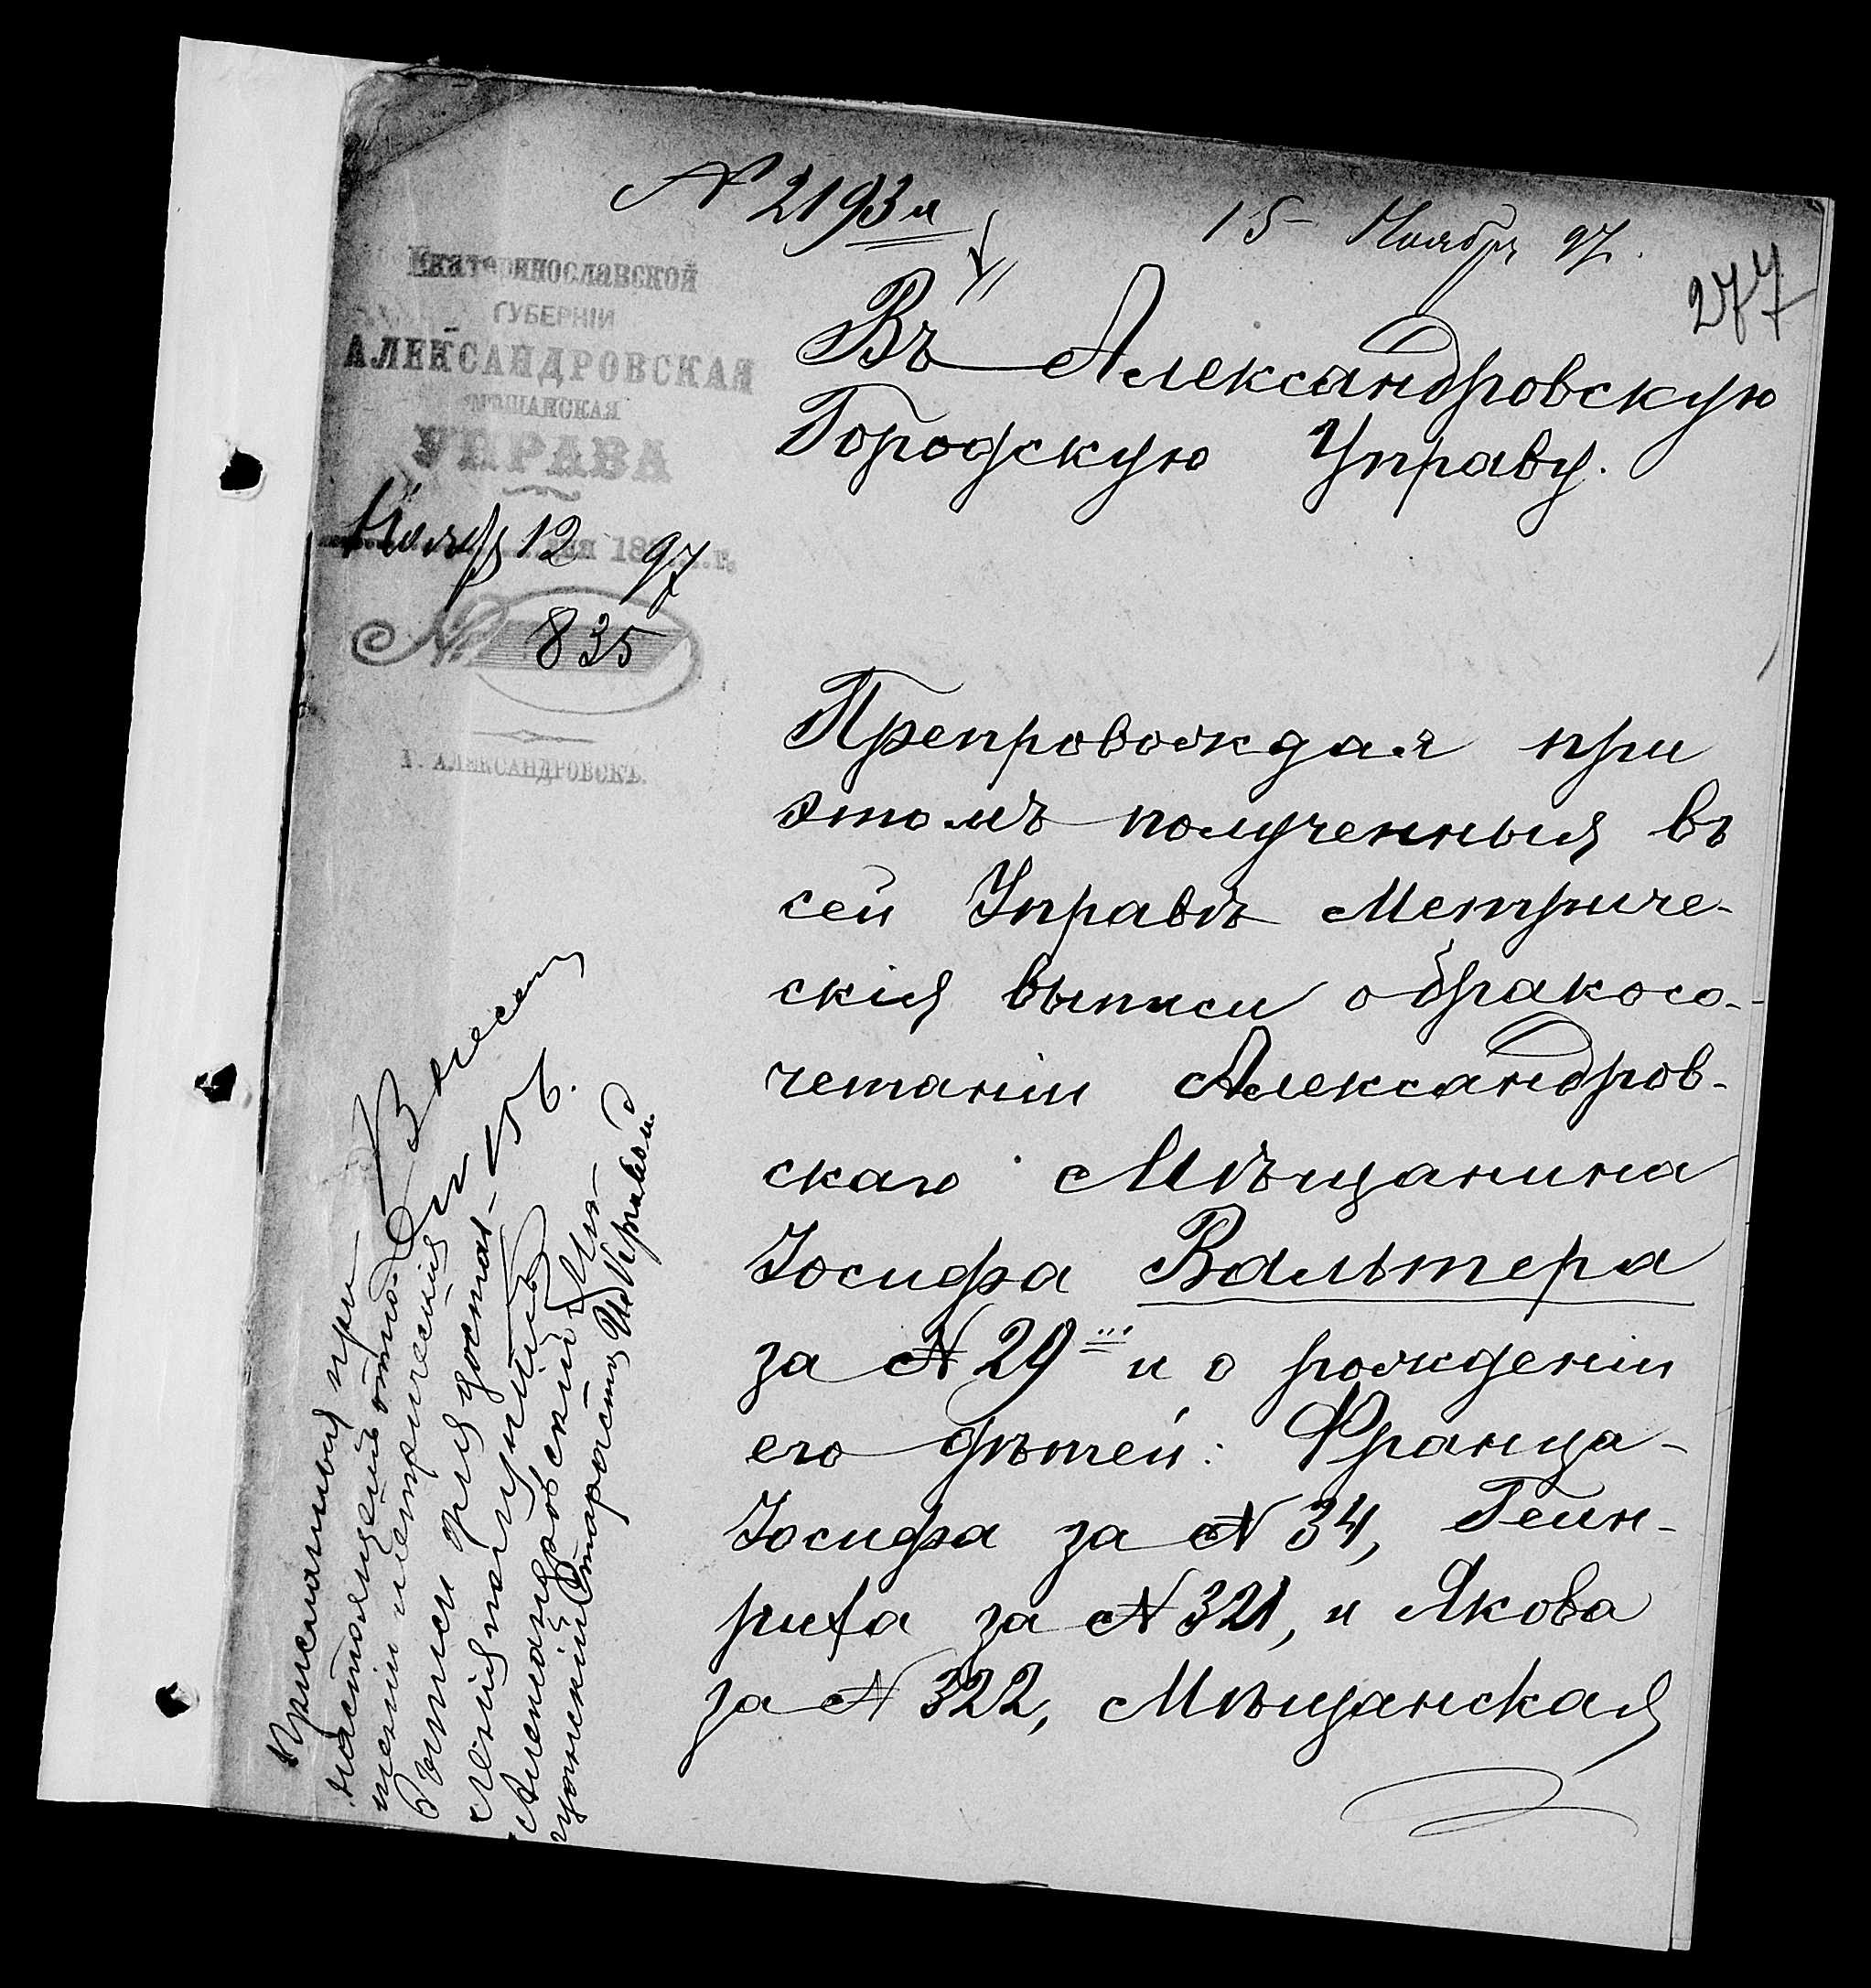 № 2193
15 Ноября 97.
277
Екатеринославской
ГУБЕРНІИ
АЛЕКСАНДРОВСКАЯ
МѢЩАНСКАЯ
УПРАВА
Нояб 12 дня 1897 г.
№ 835
Г. АЛЕКСАНДРОВСКЪ.
Въ Александровскую
Городскую Управу.
Препровождая при
этомъ полученныя въ
сей Управѣ Метриче-
скія выписи о бракосо-
четаніи Александров-
скаго Мѣщанина
Іосифа Вальтера
за № 29 и о рожденіи
его дѣтей: Франца-
Іосифа за № 34, Гейн-
риха за № 321, и Якова
за № 322, Мѣщанская
Присланныя при
настоящемъ отно-
шеніи метрическія
выписи для доставленія
получилъ
Александровскій Мѣ-
щанскій Староста